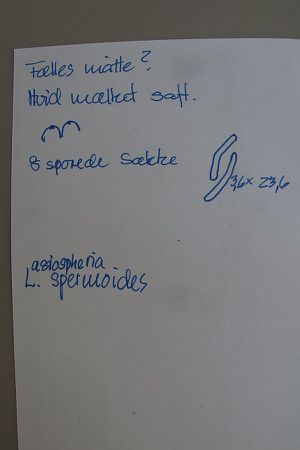 Fælles måtte?
Hvid mælket saft.
8 sporede Sække
3,6 x 23,6
Lasiospheria
L. spermoides